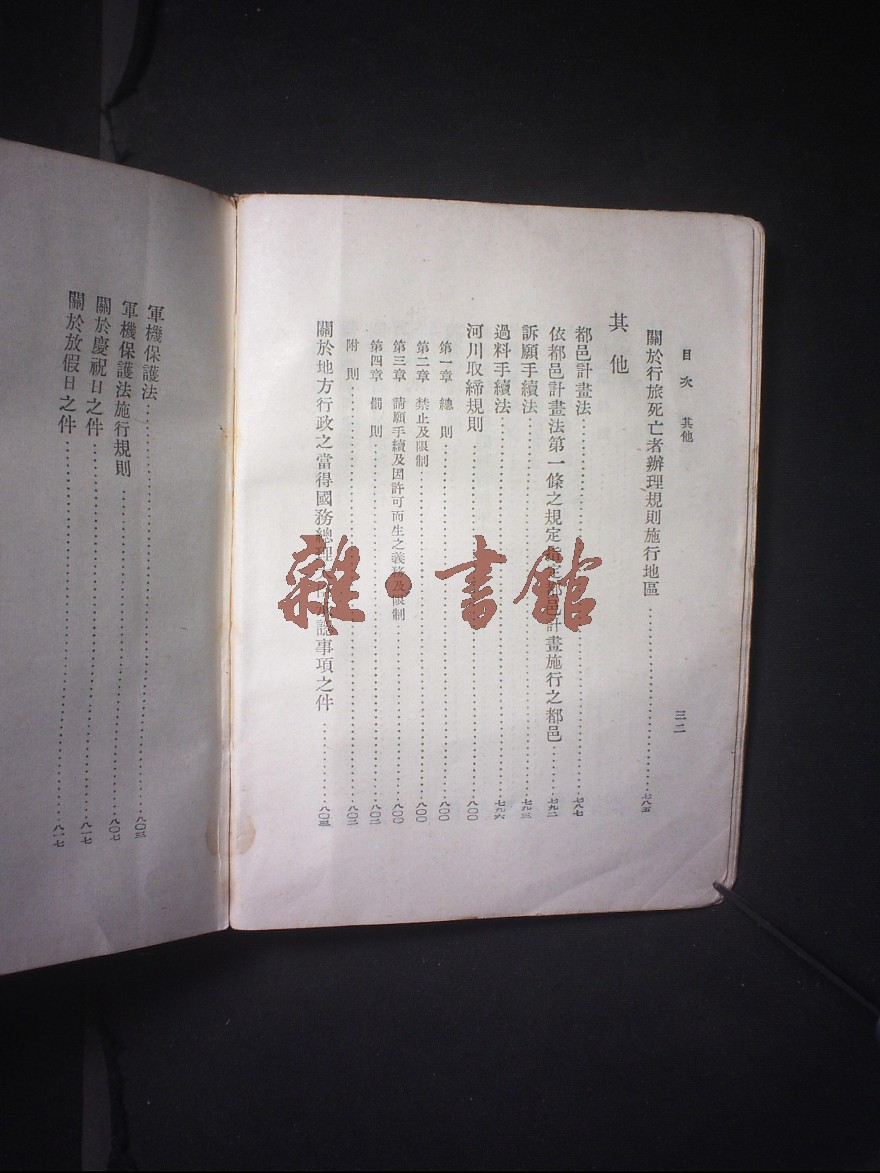 目次 其他 三二
關於行旅死亡者辦理規則施行地區 七八五
其他
都邑計畫法 七八七
依都邑計畫法第一條之規定指定都邑計畫施行之都邑 七九二
訴願手續法 七九三
過料手續法 七九六
河川取締規則 八〇〇
第一章 總則 八〇〇
第二章 禁止及限制 八〇〇
第三章 請願手續及因許可而生之義務及限制 八〇〇
第四章 罰則 八〇二
附則 八〇二
關於地方行政之當得國務總理 認事項之件 八〇三
軍機保護法 八〇三
軍機保護法施行規則 八〇七
關於慶祝日之件 八一七
關於放假日之件 八一七
雜·書館